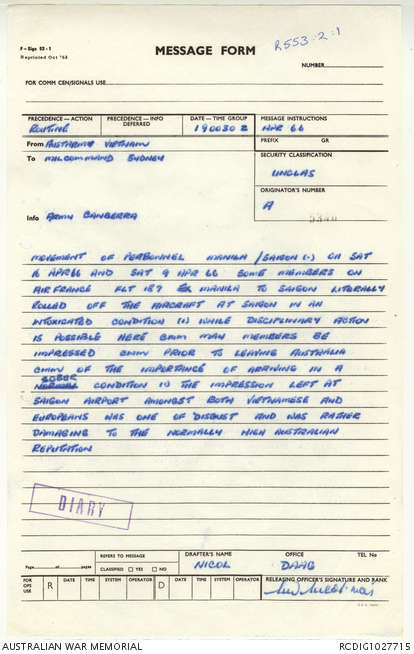 R553-2-1
F-Sigs 52-1
Reprinted Oct '63
MESSAGE FORM
NUMBER
FOR COMM CEN/SIGNALS USE
PRECEDENCE—ACTION
PRECEDENCE—INFO
DEFERRED
DATE—TIME GROUP
MESSAGE INSTRUCTIONS
ROUTINE
190030 Z
APR 66
From AUSTARMY VIETNAM
PREFIX GR
To MILCOMMAND SYDNEY
SECURITY CLASSIFICATION
UNCLAS
ORIGINATOR'S NUMBER
A
Info ARMY CANBERRA
MOVEMENT OF PERSONNEL MANILA/SAIGON (.) ON SAT
16 APR 66 AND SAT 9 APR 66 SOME MEMBERS ON
AIR FRANCE FLT 187 EX MANILA TO SAIGON LITERALLY
ROLLED OFF THE AIRCRAFT AT SAIGON IN AN
INTOXICATED CONDITION (.) WHILE DISCIPLINARY ACTION
IS POSSIBLE HERE CMM MAY MEMBERS BE
IMPRESSED CMM PRIOR TO LEAVING AUSTRALIA
CMM OF THE IMPORTANCE OF ARRIVING IN A
SOBER
NORMAL CONDITION (.) THE IMPRESSION LEFT AT
SAIGON AIRPORT AMONGST BOTH VIETNAMESE AND
EUROPEANS WAS ONE OF DISGUST AND WAS RATHER
DAMAGING TO THE NORMALLY HIGH AUSTRALIAN
REPUTATION
DIARY
Page of pages
REFERS TO MESSAGE
CLASSIFIED YES NO
DRAFTER'S NAME
NICOL
OFFICE
DAAG
TEL No
FOR OPS USE
R
DATE
TIME
SYSTEM
OPERATOR
D
DATE
TIME
SYSTEM
OPERATOR
RELEASING OFFICER'S SIGNATURE AND RANK
AUSTRALIAN WAR MEMORIAL
RCDIG1027715